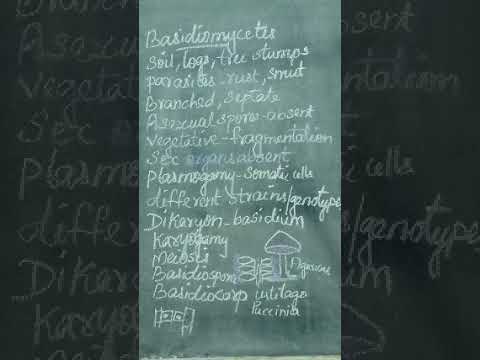 Basidiomycetes
soil, logs, tree stumps
parasites-rust, smut
Branched, Septate
Asexual spores-absent
vegetative-fragmentation
Sex organs absent
Plasmogamy-Somatic cells
different strains/genotypes
Dikaryon-basidium
Karyogamy
Meiosis
Basidiospore
Basidiocarp
Agaricus
ustilago
Puccinia